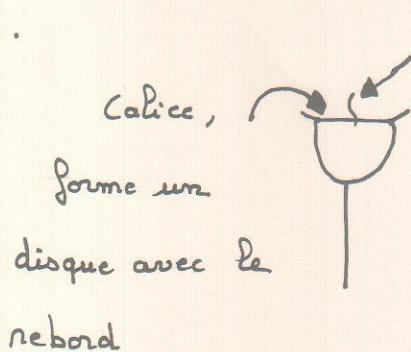 Calice,
forme un
disque avec le
rebord